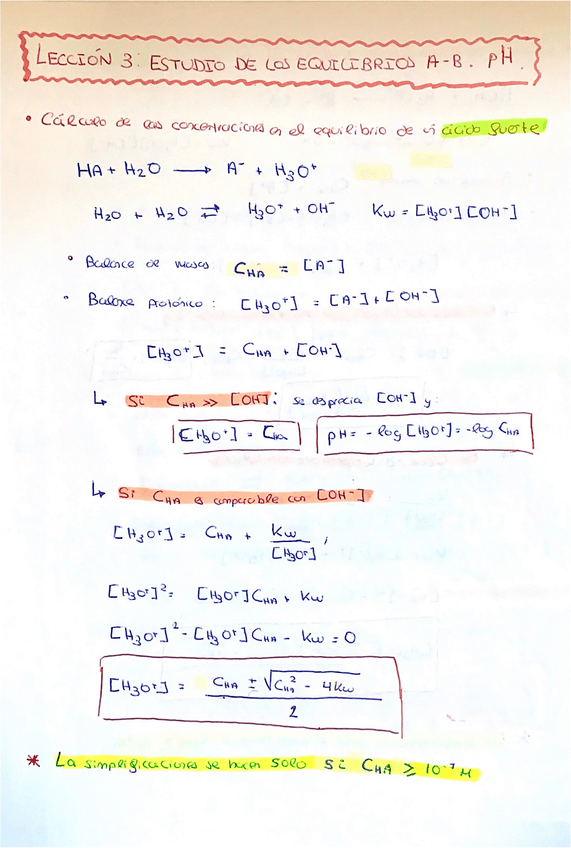 LECCIÓN 3: ESTUDIO DE LOS EQUILIBRIOS A-B. pH.
• Cálculo de las concentraciones en el equilibrio de un ácido fuerte
HA + H₂O ⟶ A⁻ + H₃O⁺
H₂O + H₂O ⇄ H₃O⁺ + OH⁻ Kw = [H₃O⁺][OH⁻]
• Balance de masas C_HA = [A⁻]
• Balance protónico: [H₃O⁺] = [A⁻] + [OH⁻]
[H₃O⁺] = C_HA + [OH⁻]
↳ Si C_HA >> [OH]: se desprecia [OH⁻] y:
[H₃O⁺] = C_HA pH = -log [H₃O⁺] = -log C_HA
↳ Si C_HA es comparable con [OH⁻]
[H₃O⁺] = C_HA + Kw/[H₃O⁺] ;
[H₃O⁺]² = [H₃O⁺] C_HA + Kw
[H₃O⁺]² - [H₃O⁺] C_HA - Kw = 0
[H₃O⁺] = (C_HA ± √(C_HA² - 4Kw))/2
* La simplificaciones se hacen solo si C_HA ≥ 10⁻⁷ M